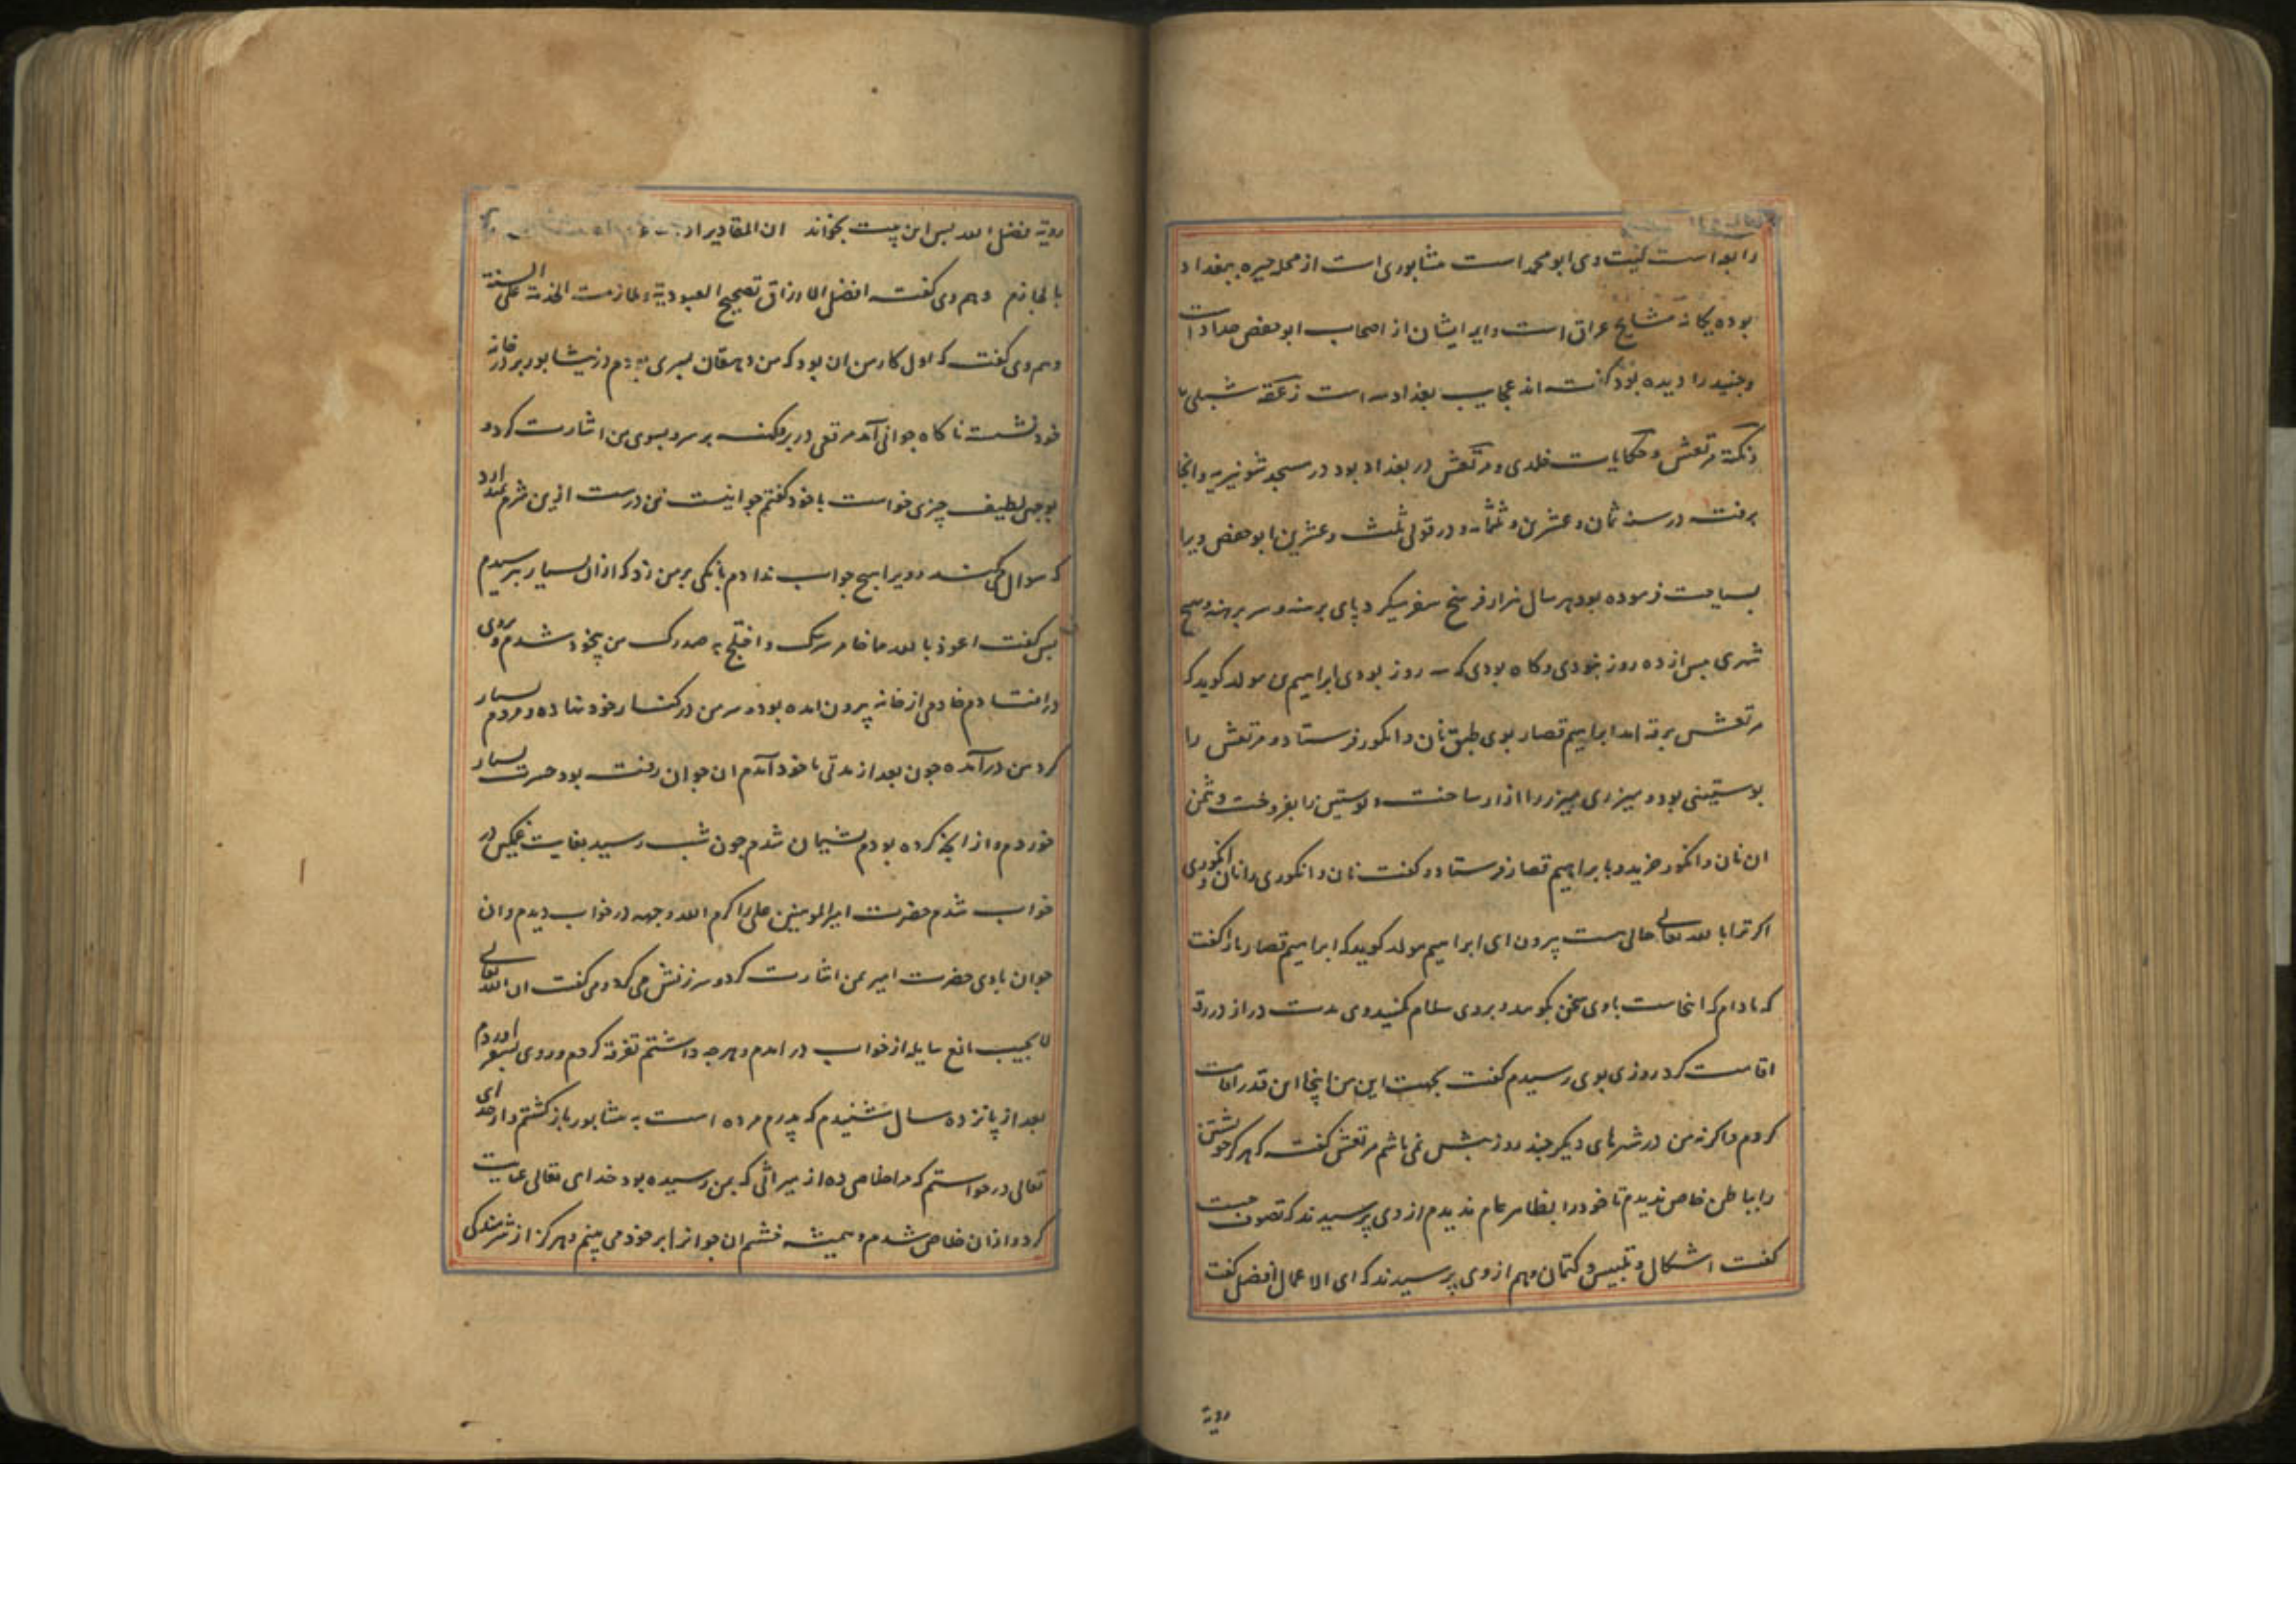 رابعه است کنیت وی ابو محمد است نشابوری است از محله حیره ببغداد
بوده یکانه مشایخ عراق است و ایر ایشان از اصحاب ابو حفص حداد است
و جنید را دیده بود کفته اند عجایب بغداد سه است زعقه شبلی
و نکته مرتعش و حکایات خلدی و مرتعش در بغداد بود در مسجد شونیزیه و انجا
برفت در سنه ثمان و عشرین و ثلثمائه و در قولی ثلث و عشرین ابو حفص ویرا
بسیاحت فرموده بود هر سال هزار فرسخ سفر میکرد پای برهنه و سر برهنه و بهیچ
شهری بیش از ده روز نبودی و کاه بودی که سه روز بودی ابراهیم بن مولد کوید که
مرتعش برقه امد ابراهیم قصار بوی طبق نان و انکور فرستاد و مرتعش را
بوستینی بود و میزری میزر را ازار ساخت و بوستین را بفروخت و ثمن
ان نان و انکور خرید و با براهیم قصار فرستاد و کفت نان و انکوری را نان و انکوری
اکر ترا با الله تعالی حالی هست بیرون ای ابراهیم مولد کوید که ابراهیم قصار باز کفت
که مادام که اینجاست باوی سخن مکوید و بروی سلام مکنید وی مدت دراز در رقه
اقامت کرد روزی بوی رسیدم کفت بجهت این من اینجا این قدر اقامت
کردم و اکرنه من در شهرهای دیکر چند روز بیش نمی باشم مرتعش کفت که هرکز خویشتن
را بباطن خاص ندیدم تا خود را بظاهر عام ندیدم از وی پرسیدند که تصوف چیست
کفت اشکال و تلبیس و کتمان و هم از وی پرسیدند که ای الاعمال افضل کفت
رویة
رویة فضل الله بس این بیت بخواند ان المقادیر اذا
بالحازم و هم وی کفت افضل الارزاق تصحیح العبودیة و ملازمت الخدمة علی السنة
و هم وی کفت که اول کار من ان بود که من دهقان بسری بودم در نیشابور بر در خانه
خود نشسته ناکاه جوانی آمد مرقعی در بر و کهنه بر سر و بسوی من اشارت کرد و
بوجهی لطیف چیزی خواست با خود کفتم جوانیست تن درست ازین شرم نمیدارد
که سوال می کند و ویرا هیچ جواب ندادم بانکی بر من زد که ازان بسیار بترسیدم
بس کفت اعوذ بالله مما خامر سرک و اختلج به صدرک من بیخود شدم و بروی
در افتادم خادمی از خانه بیرون امده بود و سر من در کنار خود نهاده و مردم بسیار
کرد من در آمده جون بعد از مدتی با خود آمدم ان جوان رفته بود حسرت بسیار
خوردم و از انچه کرده بودم بشیمان شدم جون شب رسید بغایت غمکین در
خواب شدم حضرت امیر المومنین علی را کرم الله وجهه در خواب دیدم و ان
جوان با وی حضرت امیر بمن اشارت کرد و سرزنش می کرد و می کفت ان الله تعالی
لا یجیب مانع سایله از خواب در امدم و هرچه داشتم تفرقه کردم و روی بسفر اوردم
بعد از پانزده سال شنیدم که پدرم مرده است به نشابور باز کشتم و از خدای
تعالی درخواستم که مرا خلاصی ده از میراثی که بمن رسیده بود خدای تعالی عنایت
کرد و ازان خلاص شدم و همیشه خشم ان جوانرا بر خود می بینم و هرکز از شرمندکی